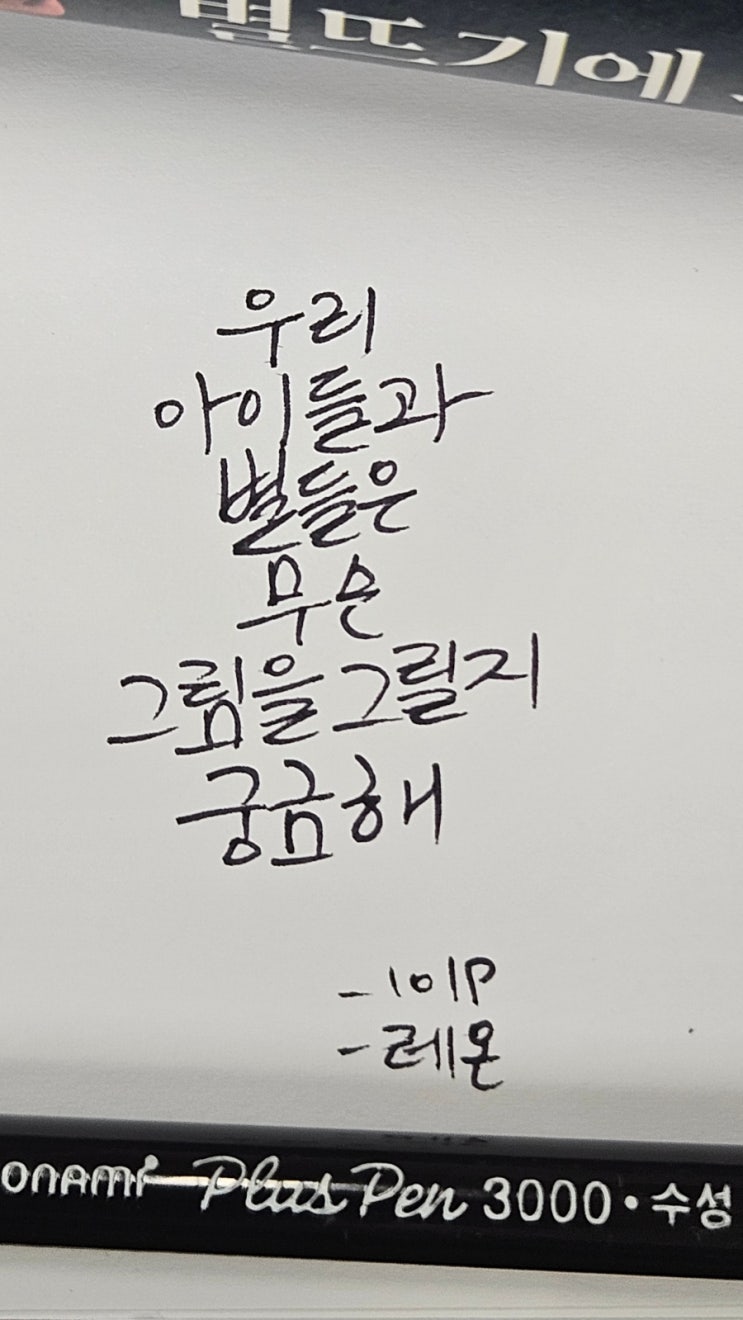 별뜨기에
우리
아이들과
별들은
무슨
그림을 그릴지
궁금해
-101P
-레몬
onami Plus Pen 3000·수성